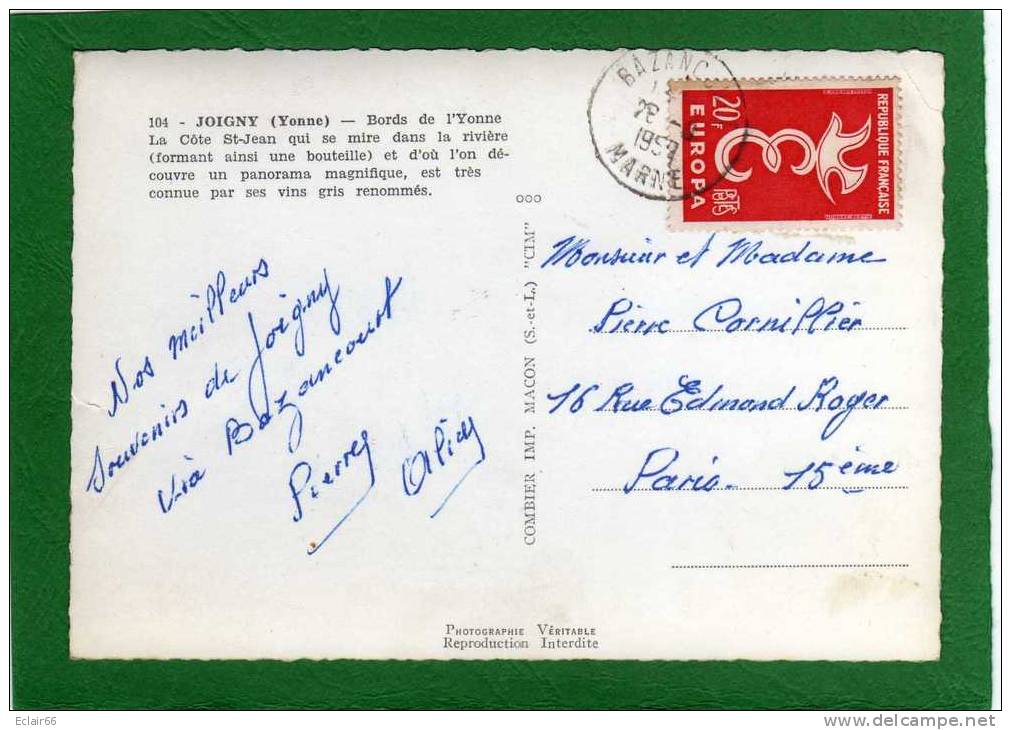 104 - JOIGNY (Yonne) — Bords de l'Yonne
La Côte St-Jean qui se mire dans la rivière
(formant ainsi une bouteille) et d'où l'on dé-
couvre un panorama magnifique, est très
connue par ses vins gris renommés.
Nos meilleurs
souvenirs de Joigny
via Bazancourt
Pierre
BAZANC
26
MARNE
20F
EUROPA
REPUBLIQUE FRANÇAISE
POSTES
COMBIER IMP. MACON (S.-et-L.) "CIM"
Monsieur et Madame
Pierre Cornillier
16 Rue Edmond Roger
Paris. 15ème
PHOTOGRAPHIE VÉRITABLE
Reproduction Interdite
Eclair66
www.delcampe.net